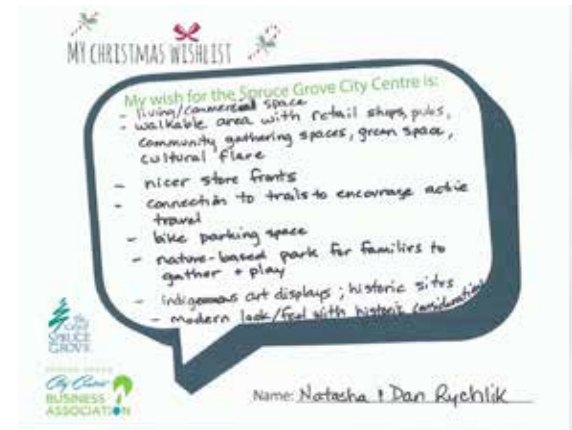 MY CHRISTMAS WISHLIST
My wish for the Spruce Grove City Centre is:
- living/commercial space
- walkable area with retail shops, pubs,
community gathering spaces, green space,
cultural flare
- nicer store fronts
- connection to trails to encourage active
travel
- bike parking space
- nature-based park for families to
gather + play
- indigenous art displays ; historic sites
- modern look/feel with historic consideration
the City of
SPRUCE
GROVE
SPRUCE GROVE
City Centre
BUSINESS
ASSOCIATION
Name: Natasha & Dan Rychlik